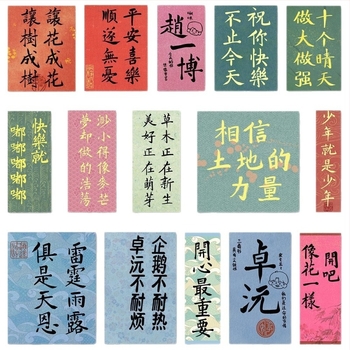 讓花成花
讓樹成樹
平安喜樂
順遂無憂
趙一博
祝你快樂
不止今天
十个晴天
做大做强
快樂就
嘟嘟嘟嘟嘟
渺小得像麥芒
夢却做的浩蕩
草木正在新生
美好正在萌芽
相信
土地的
力量
少年就是少年
雷霆雨露
俱是天恩
企鹅不耐热
卓沅不耐烦
開心最重要
卓沅
開吧
像花一樣